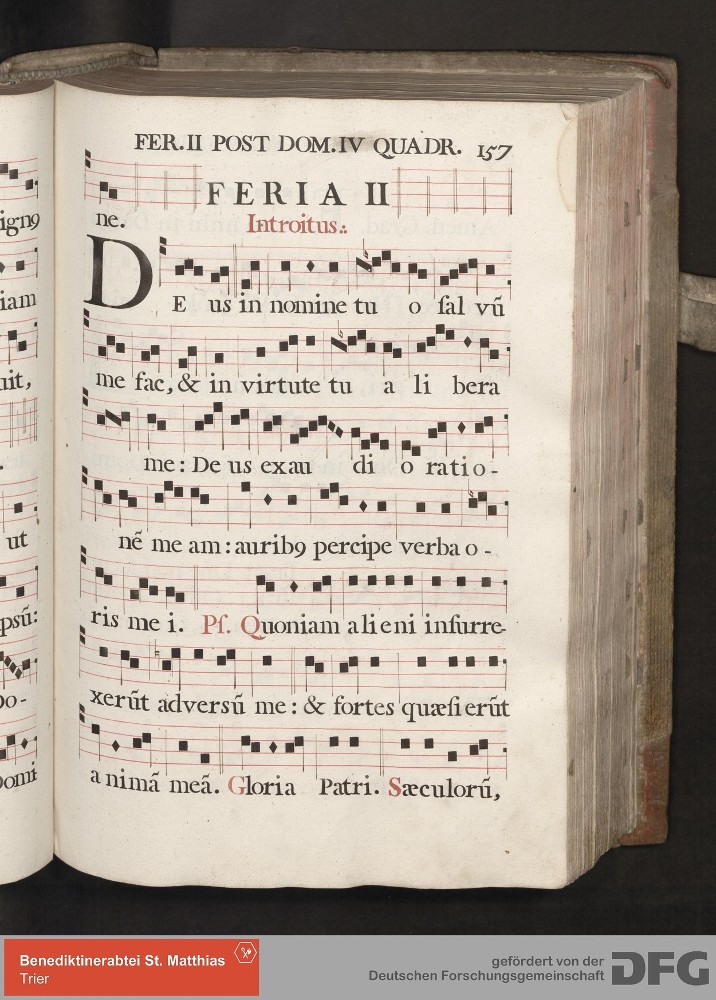 ign9
iam
uit,
ut
psũ:
Domi
FER. II POST DOM. IV QUADR. 157
FERIA II
ne. Introitus.:
DE us in nomine tu o ſal vũ
me fac, & in virtute tu a li bera
me: De us exau di o ratio-
nẽ me am: aurib9 percipe verba o-
ris me i. Pſ. Quoniam alieni inſurre-
xerũt adversũ me: & fortes quæſierũt
a nimã meã. Gloria Patri. Sæculorũ,
Benediktinerabtei St. Matthias
Trier
gefördert von der
Deutschen Forschungsgemeinschaft
DFG